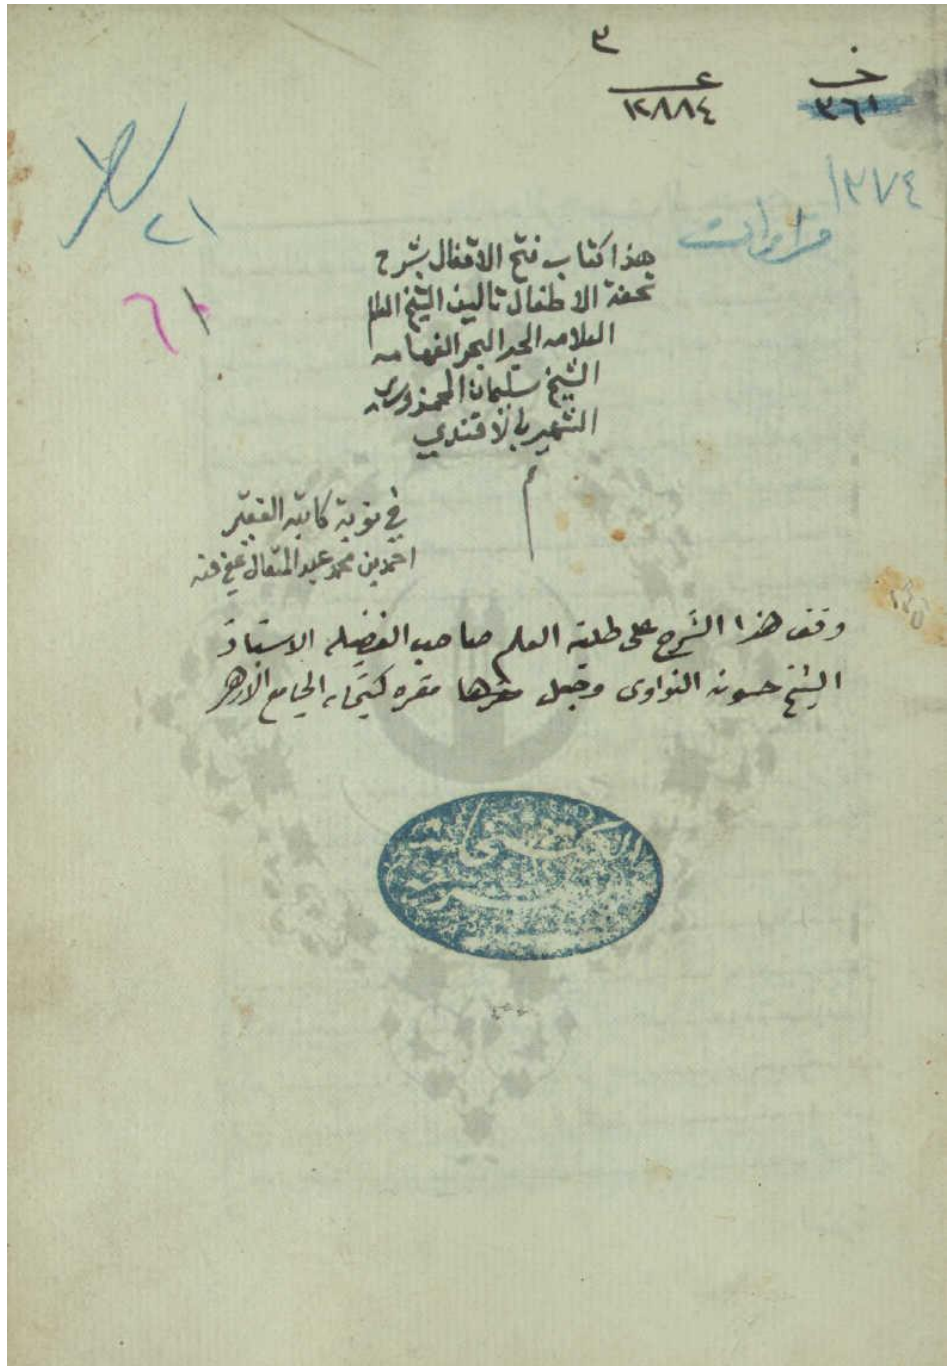 ٣
خ ع
٣٦١ ١٢٨٨٤
١٣٧٤
قراءات
٢١
٦١
هذا كتاب فتح الاقفال بشرح
تحفة الاطفال تاليف الشيخ
العلامه الحبر البحر الفهامه
الشيخ سليمان الجمزوري
الشهير بالافندي
م
في نوبة كاتبه الفقير
احمد بن محمد عبد المتعال عفي عنه
وقف هذا الشرح على طلبة العلم صاحب الفضيله الاستاذ
الشيخ حسونه النواوى وجعل مقرها مقره كتبخانه الجامع الازهر